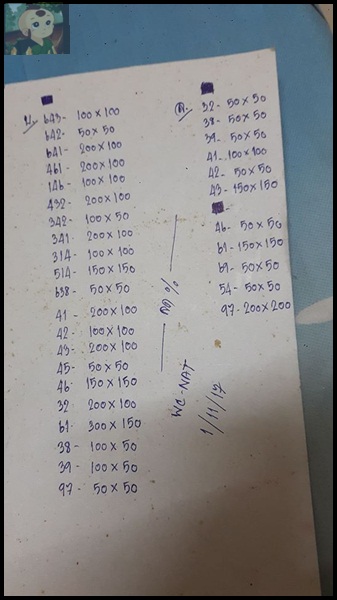 บ. 643- 100x100
642- 50x50
641- 200x100
461- 200x100
146- 100x100
432- 200x100
342- 100x50
341- 200x100
314- 100x100
514- 150x150
638- 50x50
41- 200x100
42- 100x100
43- 200x100
45- 50x50
46- 150x150
32 200x100
61- 300x150
38- 100x50
39- 100x50
97- 50x50
32- 50x50
38- 50x50
39- 50x50
41- 100x100
42- 50x50
43- 150x150
46- 50x50
61- 150x150
69- 50x50
54- 50x50
97- 200x200
1/11/17